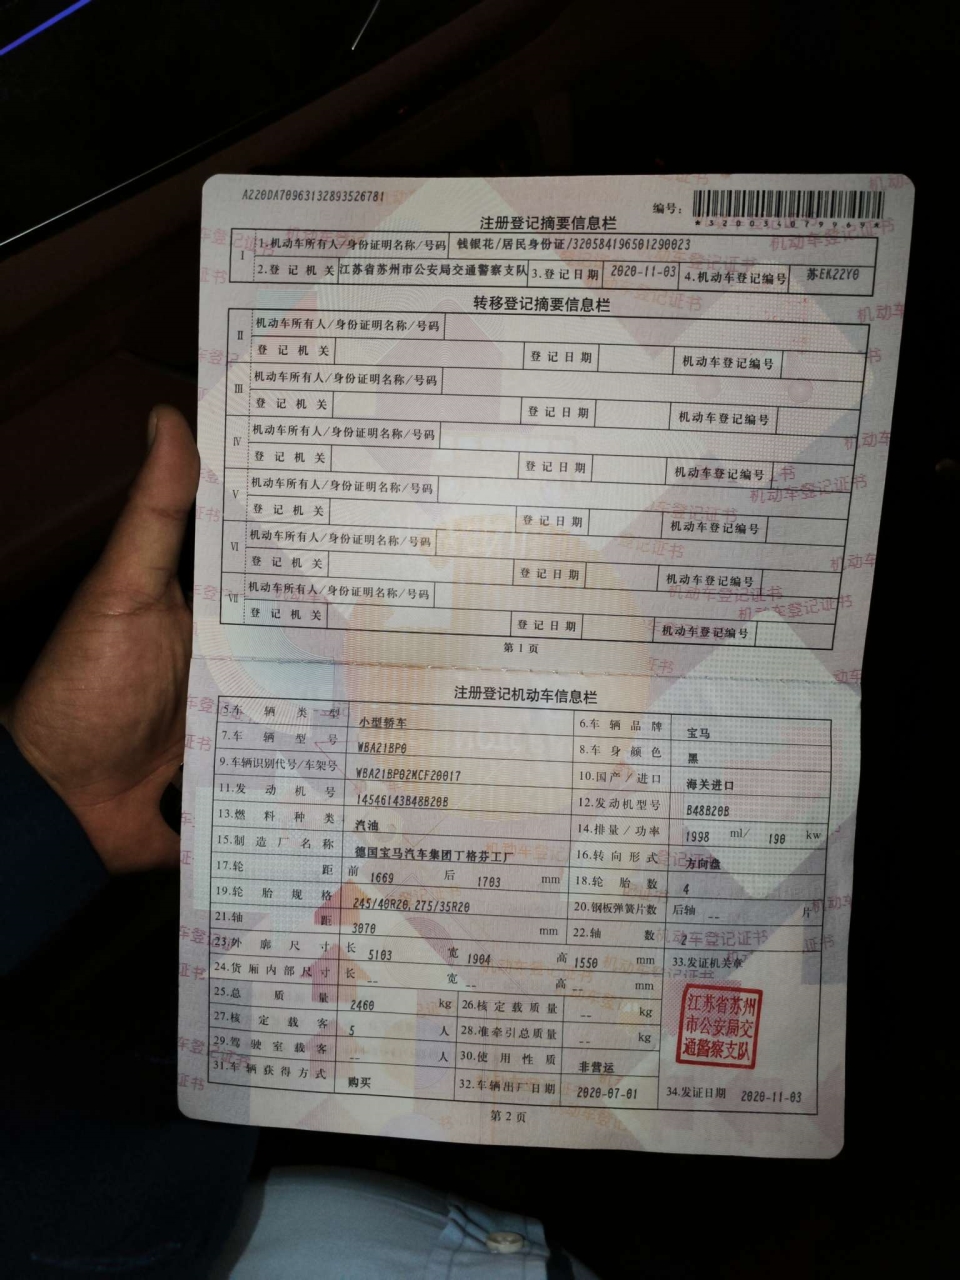 AZ20DA70963132893526781
编号：
*320034079969*
注册登记摘要信息栏
I 1.机动车所有人/身份证明名称/号码 钱银花/居民身份证/320584196501290023
2.登记机关 江苏省苏州市公安局交通警察支队 3.登记日期 2020-11-03 4.机动车登记编号 苏EK22Y0
转移登记摘要信息栏
II 机动车所有人/身份证明名称/号码
登记机关 登记日期 机动车登记编号
III 机动车所有人/身份证明名称/号码
登记机关 登记日期 机动车登记编号
IV 机动车所有人/身份证明名称/号码
登记机关 登记日期 机动车登记编号
V 机动车所有人/身份证明名称/号码
登记机关 登记日期 机动车登记编号
VI 机动车所有人/身份证明名称/号码
登记机关 登记日期 机动车登记编号
VII 机动车所有人/身份证明名称/号码
登记机关 登记日期 机动车登记编号
第1页
注册登记机动车信息栏
5.车辆类型 小型轿车 6.车辆品牌 宝马
7.车辆型号 WBA21BP0 8.车身颜色 黑
9.车辆识别代号/车架号 WBA21BP02MCF20017 10.国产/进口 海关进口
11.发动机号 14546143B48B20B 12.发动机型号 B48B20B
13.燃料种类 汽油 14.排量/功率 1998 ml/ 190 kw
15.制造厂名称 德国宝马汽车集团丁格芬工厂 16.转向形式 方向盘
17.轮距 前 1669 后 1703 mm 18.轮胎数 4
19.轮胎规格 245/40R20,275/35R20 20.钢板弹簧片数 后轴 -- 片
21.轴距 3070 mm 22.轴数 2
23.外廓尺寸 长 5103 宽 1904 高 1550 mm 33.发证机关章
24.货厢内部尺寸 长 -- 宽 -- 高 -- mm
25.总质量 2460 kg 26.核定载质量 -- kg
27.核定载客 5 人 28.准牵引总质量 -- kg
29.驾驶室载客 -- 人 30.使用性质 非营运
31.车辆获得方式 购买 32.车辆出厂日期 2020-07-01 34.发证日期 2020-11-03
江苏省苏州
市公安局交
通警察支队
第2页